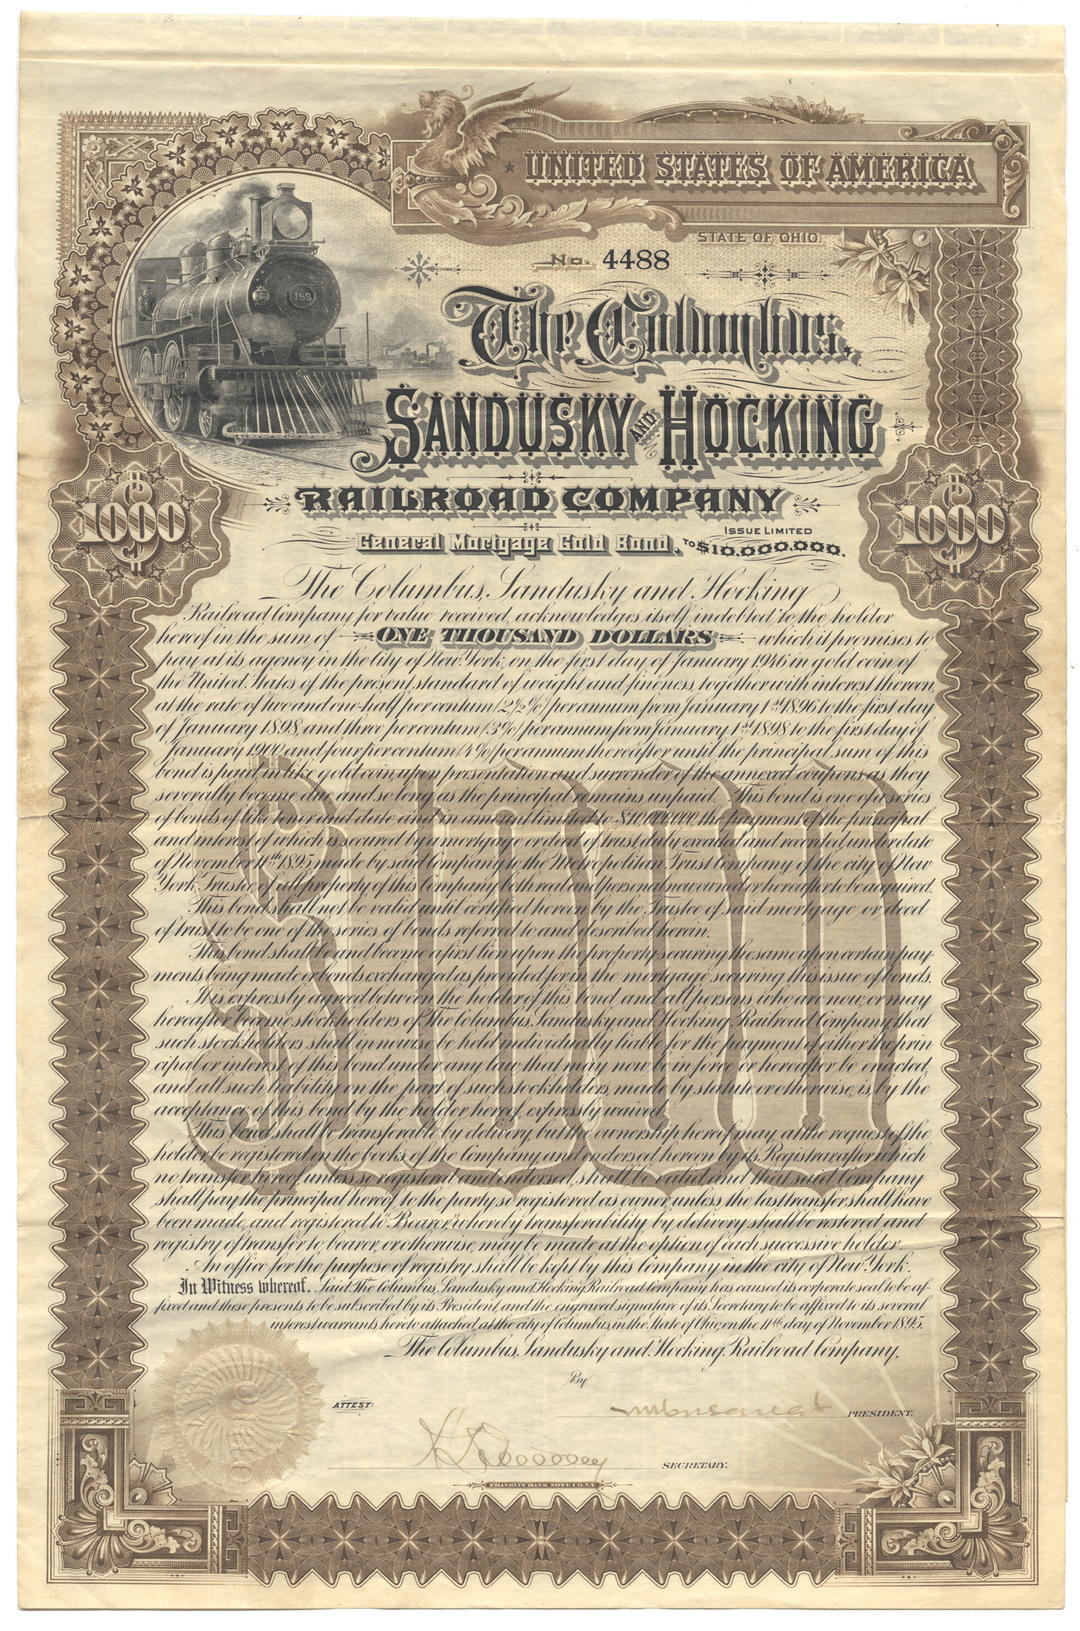 UNITED STATES OF AMERICA
STATE OF OHIO.
No. 4488
The Columbus,
SANDUSKY AND HOCKING
RAILROAD COMPANY
$1000
$1000
General Mortgage Gold Bond.
ISSUE LIMITED
TO $10,000,000.
The Columbus, Sandusky and Hocking
Railroad Company for value received, acknowledges itself indebted to the holder
hereof in the sum of ONE THOUSAND DOLLARS which it promises to
pay at its agency in the City of New York, on the first day of January 1946 in gold coin of
the United States of the present standard of weight and fineness, together with interest thereon,
at the rate of two and one-half per centum (2½%) per annum from January 1st 1896 to the first day
of January 1898, and three per centum (3%) per annum from January 1st 1898 to the first day of
January 1900, and four per centum (4%) per annum thereafter until the principal sum of this
bond is paid in like gold coin upon presentation and surrender of the annexed coupons as they
severally become due and so long as the principal remains unpaid. This bond is one of a series
of bonds of like tenor and date and in amount limited to $10,000,000, the payment of the principal
and interest of which is secured by a mortgage or deed of trust, duly executed and recorded under date
of November 11th 1895, made by said Company to the Metropolitan Trust Company of the city of New
York, Trustee, of all property of this Company both real and personal now owned or hereafter to be acquired.
This bond shall not be valid until certified hereon by the Trustee of said mortgage or deed
of trust to be one of the series of bonds referred to and described herein.
This bond shall be and become a first lien upon the property securing the same upon certain pay
ments being made or bonds exchanged as provided for in the mortgage securing this issue of bonds.
It is expressly agreed between the holder of this bond, and all persons who are now, or may
hereafter become stockholders of The Columbus, Sandusky and Hocking Railroad Company that
such stockholders shall in no wise be held individually liable for the payment of either the prin
cipal or interest of this bond under any law that may now be in force or hereafter be enacted,
and all such liability on the part of such stockholders, made by statute or otherwise, is, by the
acceptance of this bond by the holder hereof, expressly waived.
This bond shall be transferable by delivery, but the ownership hereof may, at the request of the
holder, be registered on the books of the Company and endorsed hereon by its Registrar, after which
no transfer hereof, unless so registered and endorsed, shall be valid, and that said Company
shall pay the principal hereof to the party so registered as owner, unless the last transfer shall have
been made, and registered to "Bearer," whereby transferability by delivery shall be restored, and
registry of transfer to bearer, or otherwise, may be made at the option of each successive holder.
An office for the purpose of registry shall be kept by this Company in the city of New York.
In Witness whereof, Said The Columbus, Sandusky and Hocking Railroad Company has caused its corporate seal to be af-
fixed and these presents to be subscribed by its President, and the engraved signature of its Secretary to be affixed to its several
interest warrants hereto attached, at the city of Columbus, in the State of Ohio, on the 11th day of November 1895.
The Columbus, Sandusky and Hocking Railroad Company,
By
ATTEST:
PRESIDENT.
SECRETARY.
FRANKLIN BANK NOTE CO. N.Y.